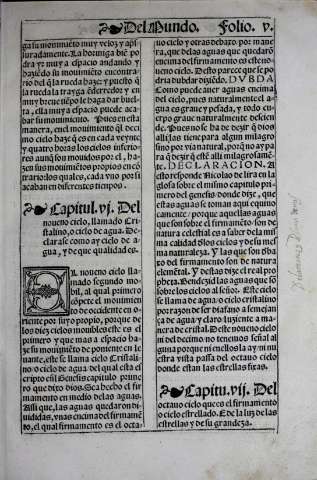 Del Mundo. Folio. v.
ga su mouimiẽto muy veloz y apsuradamente. La hormiga biẽ podra yr muy a espacio andando y
haziẽdo su mouimiẽto encontrario del q̃ la rueda haze: y puesto q̃
la rueda la trayga ẽderredor y en
muy breue tiẽpo le haga dar buelta, ella muy a espacio puede acabar su mouimiento. Pues en esta
manera, en el mouimiẽto q̃l decimo cielo haze q̃ es en cada veynte
y quatro horas los cielos inferiores aunq̃ son mouidos por el, hazen sus mouimiẽtos propios encõtrarios los quales, cada vno por si
acaban en diferentes tiempos.
Capitul. vj. Del
noueno cielo, llamado Cristalino, o cielo de agua. Declarase como ay cielo de agua, y de que qualidad es.
EL noueno cielo llamado segundo mobil, al qual primero cõpete el mouimiento de occidente en oriente por suyo propio, porque de
los diez cielos mouibles este es el
primero y que mas a espacio haze su mouimiẽto de poniente en leuante, este se llama cielo Cristalino: o cielo de agua del qual esta escripto en el Genesis capitulo primero que dixo dios. Sea hecho el firmamento en medio de las aguas.
Assi que, las aguas quedarõ diuididas, vnas encima del firmamẽto, el qual firmamento es el octauo
no cielo y otras debaxo. por manera, que del agua es que quedarõ
encima del firmamento es este noueno cielo. Desto parece que se podria dubdar diziẽdo. DVBDA
Como puede auer aguas encima
del cielo, pues naturalmente el agua es graue y pesada, y todo cuerpo graue naturalmente desciende. Pues no se ha de dezir q̃ dios
alli las tiene para algun milagro
sino por via natural, porq̃ no aypara q̃ dezir q̃ esté alli milagrosamẽte. DECLARACION. A
esto responde Nicolao de lira en la
glosa sobre el mismo capitulo primero del genesis donde dize, que
estas aguas se toman aqui equiuocamente: porque aquellas aguas
que son sobre el firmamẽto: son de
natura celestial es a saber de la misma calidad dlos cielos y de su mesma naturaleza. Y las que son debaxo del firmamento son de natura elemẽtal. Y destas dize el real propheta. Bendezid las aguas que so
bre los cielos al señor. Este cielo
se llama de agua: o cielo cristalino
por razon de ser diafano a semejança de agua y claro luziente a manera de cristal. Deste noueno cielo
ni del decimo no tenemos señal alguna porque ni en ellos la ay ni nuestra vista passa del octauo cielo
donde estan las estrellas fixas.
Capitu. vij. Del
octauo cielo que es el firmamento
o cielo estrellado. E de la luz de las
estrellas y de su grandeza.